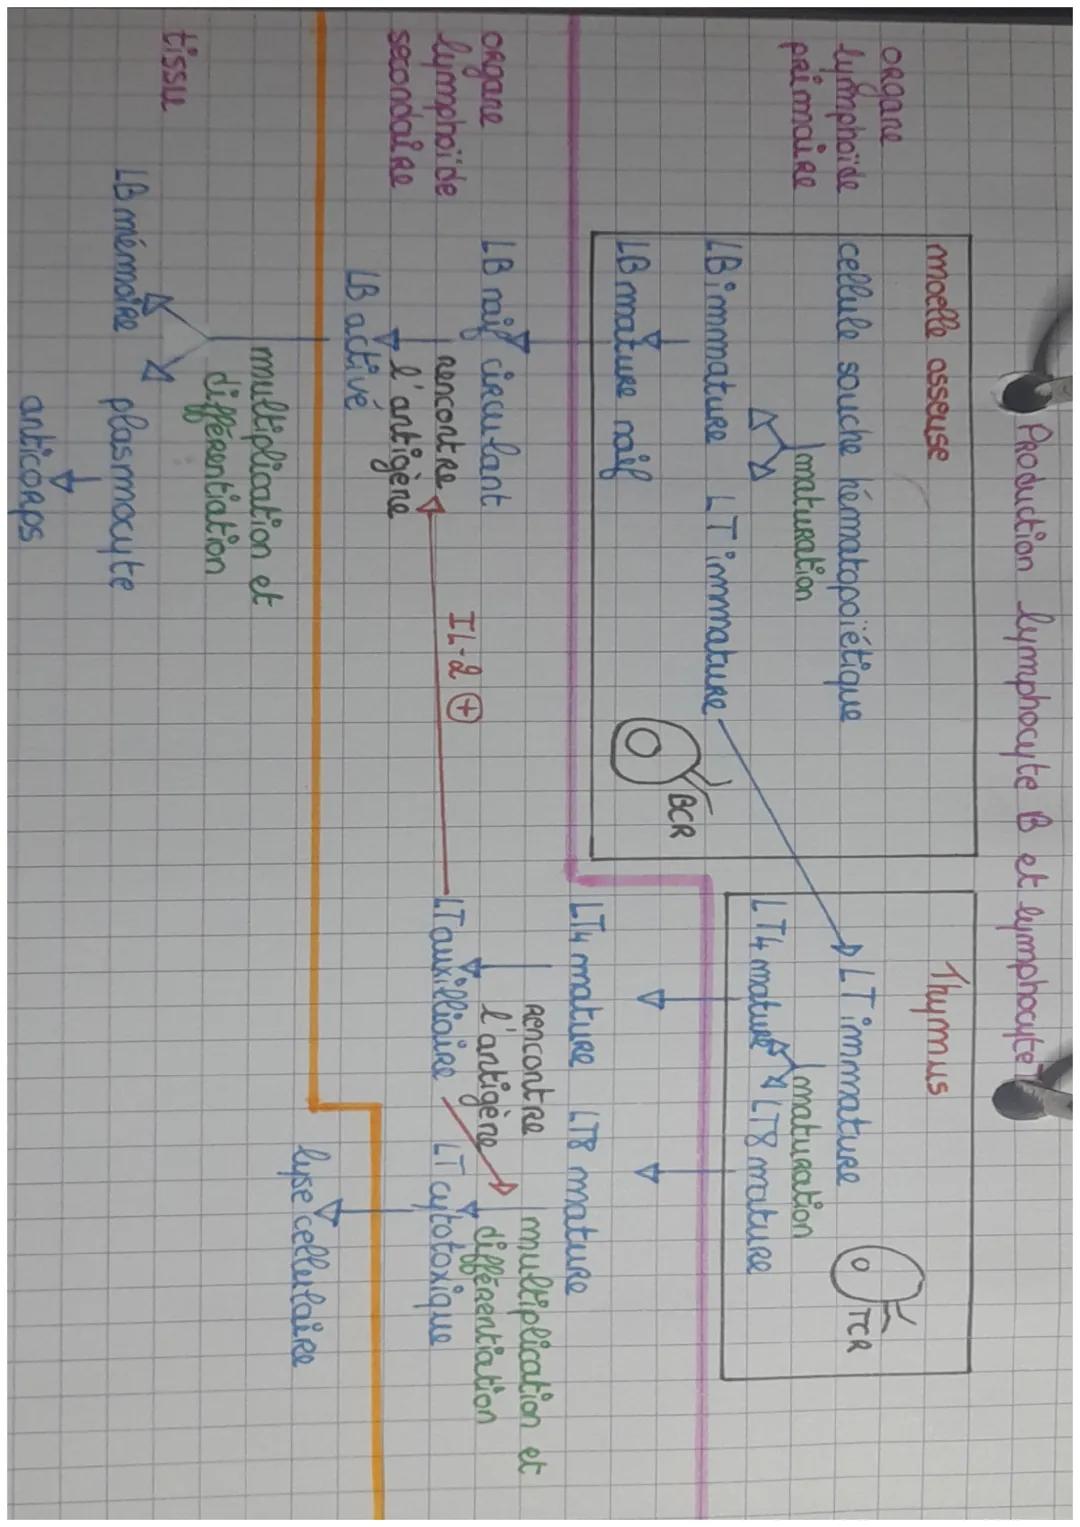 Production lymphocyte B et lymphocyte T
organe
lymphoïde
primaire
moelle osseuse
cellule souche hématopoïétique
maturation
LB immature LT immature
LB mature naïf
BCR
Thymus
LT immature
TCR
maturation
LT4 mature LT8 mature
organe
lymphoïde
secondaire
LB naïf circulant
rencontre
l'antigène
LB activé
IL-2 +
LT4 mature LT8 mature
rencontre
l'antigène
multiplication et
différentiation
LT auxilliaire LT cytotoxique
tissu
multiplication et
différentiation
LB mémoire plasmocyte
anticorps
lyse cellulaire